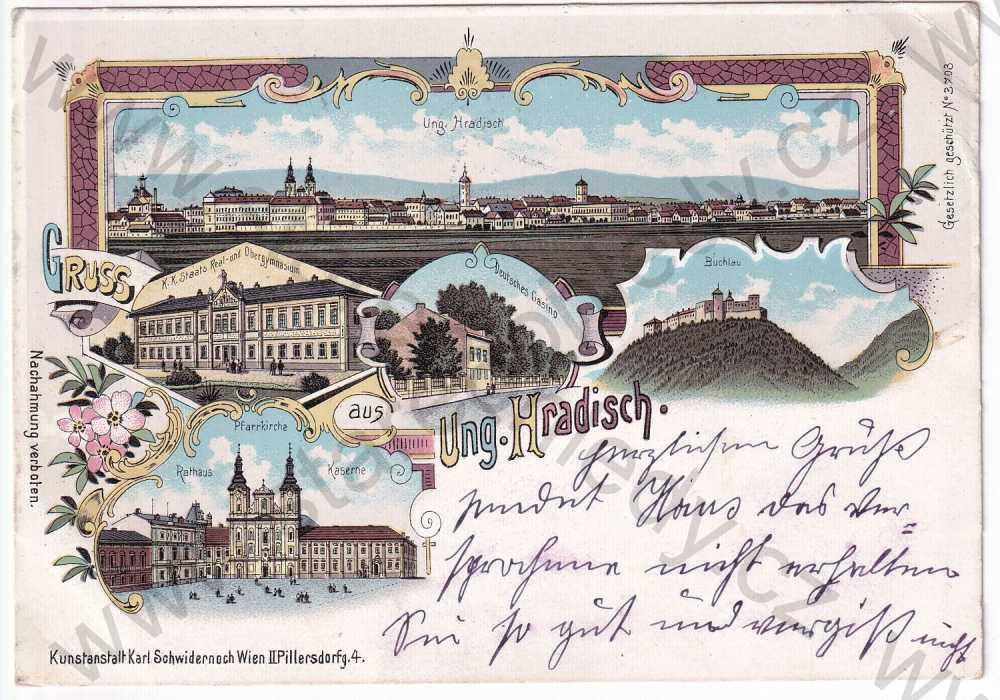 Ung. Hradisch
Gesetzlich geschützt No 3703
GRUSS
K. K. Staats Real- und Obergymnasium
Deutsches Casino
Buchlau
aus
Ung. Hradisch.
Nachahmung verboten.
Pfarrkirche
Rathaus
Kaserne
herzlichen Grüße
sendet Hans das ver=
sprochene nicht erhalten
Sei so gut und vergiß nicht
Kunstanstalt Karl Schwidernoch Wien II Pillersdorfg. 4.